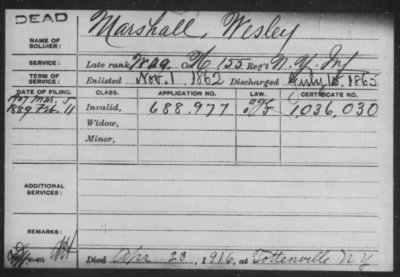 DEAD
NAME OF SOLDIER: Marshall, Wesley
SERVICE: Late rank Wag Co. K 155 Reg't N.Y. Inf
TERM OF SERVICE: Enlisted Nov. 1, 1862 Discharged July 15, 1865
DATE OF FILING. CLASS. APPLICATION NO. LAW. CERTIFICATE NO.
1889 Feb. 11 Invalid, 688.977 1,036,030
Widow,
Minor,
ADDITIONAL SERVICES:
REMARKS:
Died Apr 23, 1916, at Tottenville N Y